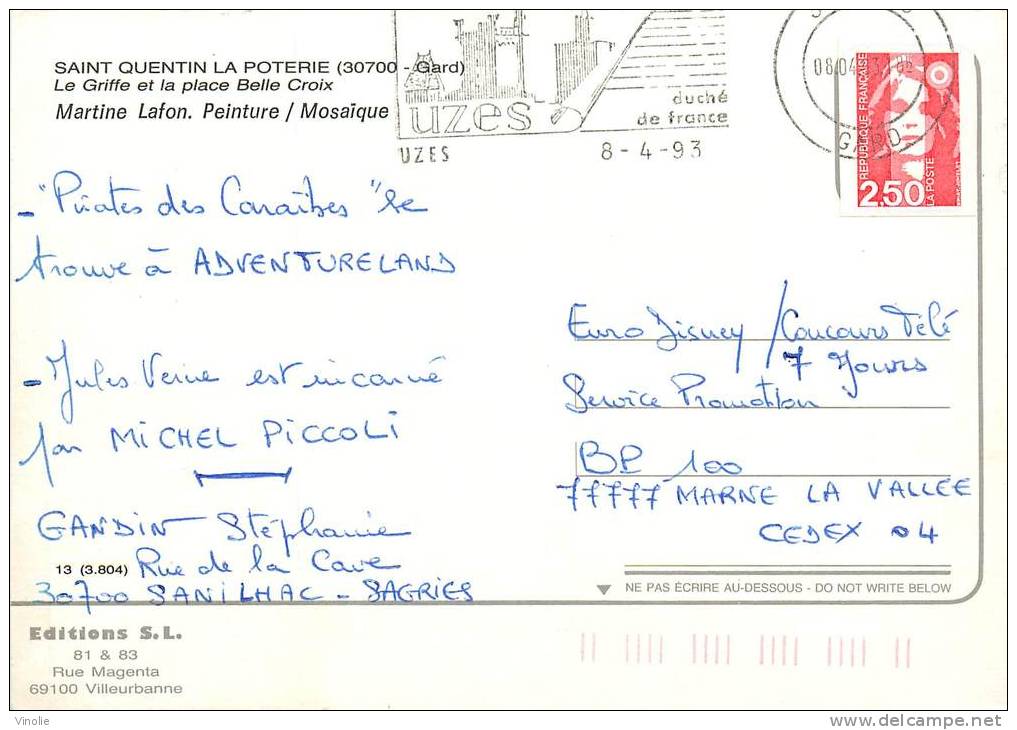 SAINT QUENTIN LA POTERIE (30700 - Gard)
Le Griffe et la place Belle Croix
Martine Lafon. Peinture / Mosaïque
uzes
duché
de france
UZES 8 - 4 - 93
GARD
REPUBLIQUE FRANÇAISE
2,50
LA POSTE
- "Pirates des Caraïbes" se
trouve à ADVENTURELAND
- Jules Verne est incarné
par MICHEL PICCOLI
GANDIN Stéphanie
13 (3.804) Rue de la Cave
30700 SANILHAC - SAGRIES
Euro Disney / Concours Télé
7 Jours
Service Promotion
BP 100
77777 MARNE LA VALLEE
CEDEX 04
NE PAS ÉCRIRE AU-DESSOUS - DO NOT WRITE BELOW
Editions S.L.
81 & 83
Rue Magenta
69100 Villeurbanne
Vinolie
delcampe.net